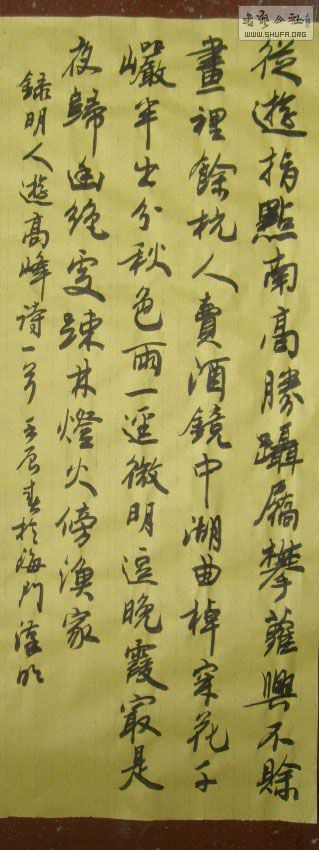 書藝公社
WWW.SHUFA.ORG
從遊指點南高勝躡屩攀蘿興不賒
畫裡餘杭人賣酒鏡中湖曲棹穿花千
巗半出分秋色雨一逕微明逗晚霞㝡是
夜歸幽絕處踈林燈火傍漁家
録明人遊高峰詩一首壬辰春於海門漢明